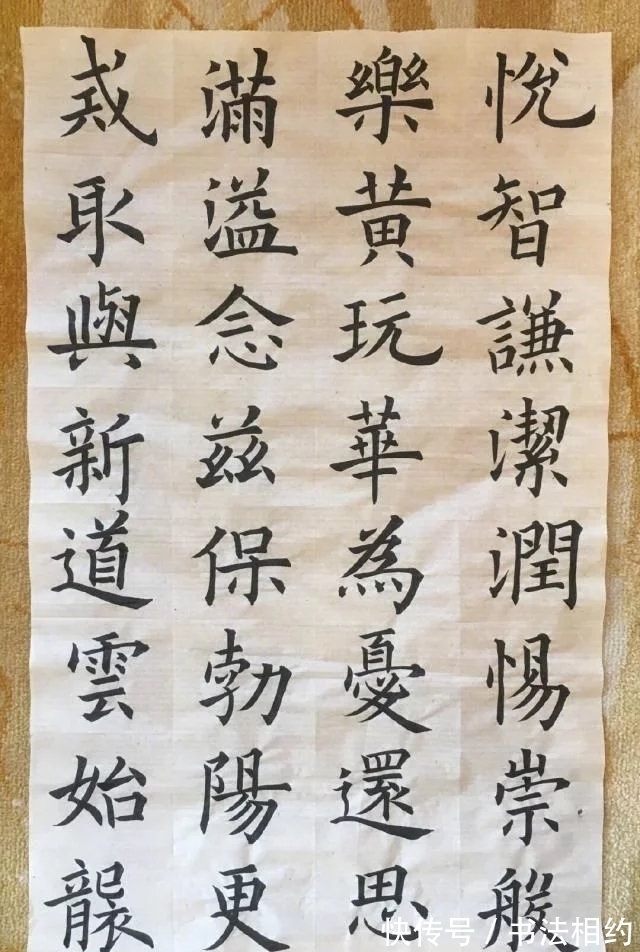 悅智謙潔潤惕崇般
樂黄玩華為憂還思
滿溢念兹保勃陽更
戒取與新道雲始襲
快传号 / 书法相约